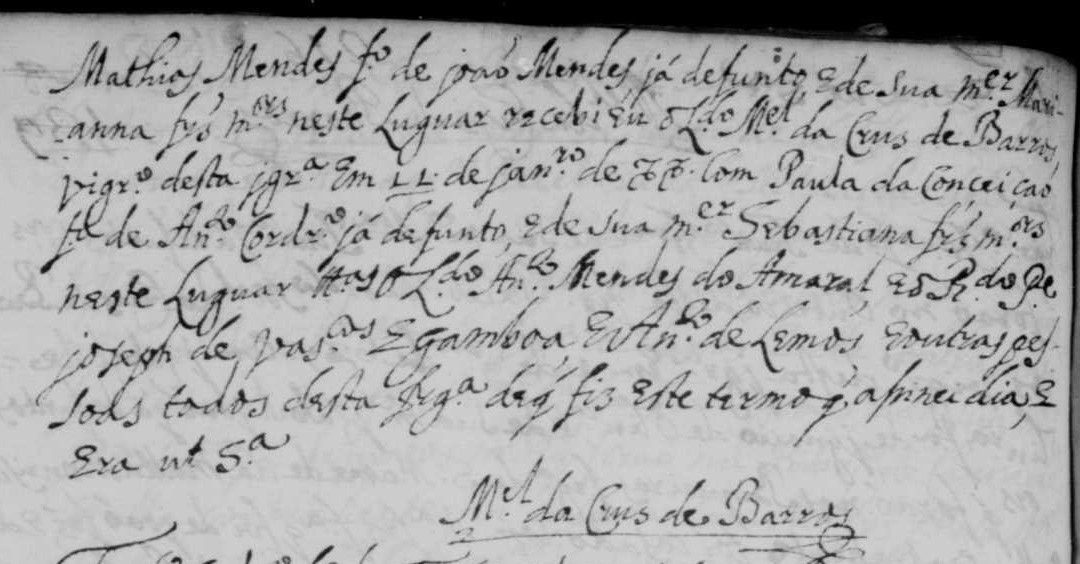 Mathias Mendes fº de joaõ Mendes, já defunto, e de sua m.er Mari-
anna frz m.ors neste Luguar recebi eu o L.do M.el da Crus de Barros
vigr.º desta jgr.ª Em 11 de jan.ro de Com Paula da Conceiçaõ
fª de An.to Cordr.º já defunto, e de sua m.er Sebastiana frz m.ors
neste Luguar tt.as o L.do An.to Mendes do Amaral, e o R.do Pe
joseph de Vas.cos E gamboa, E An.to de Lemos, e outras pes-
soas todos desta freg.ª de q̃ fiz Este termo q̃ asinei dia, E
Era ut S.ª
M.el da Crus de Barros